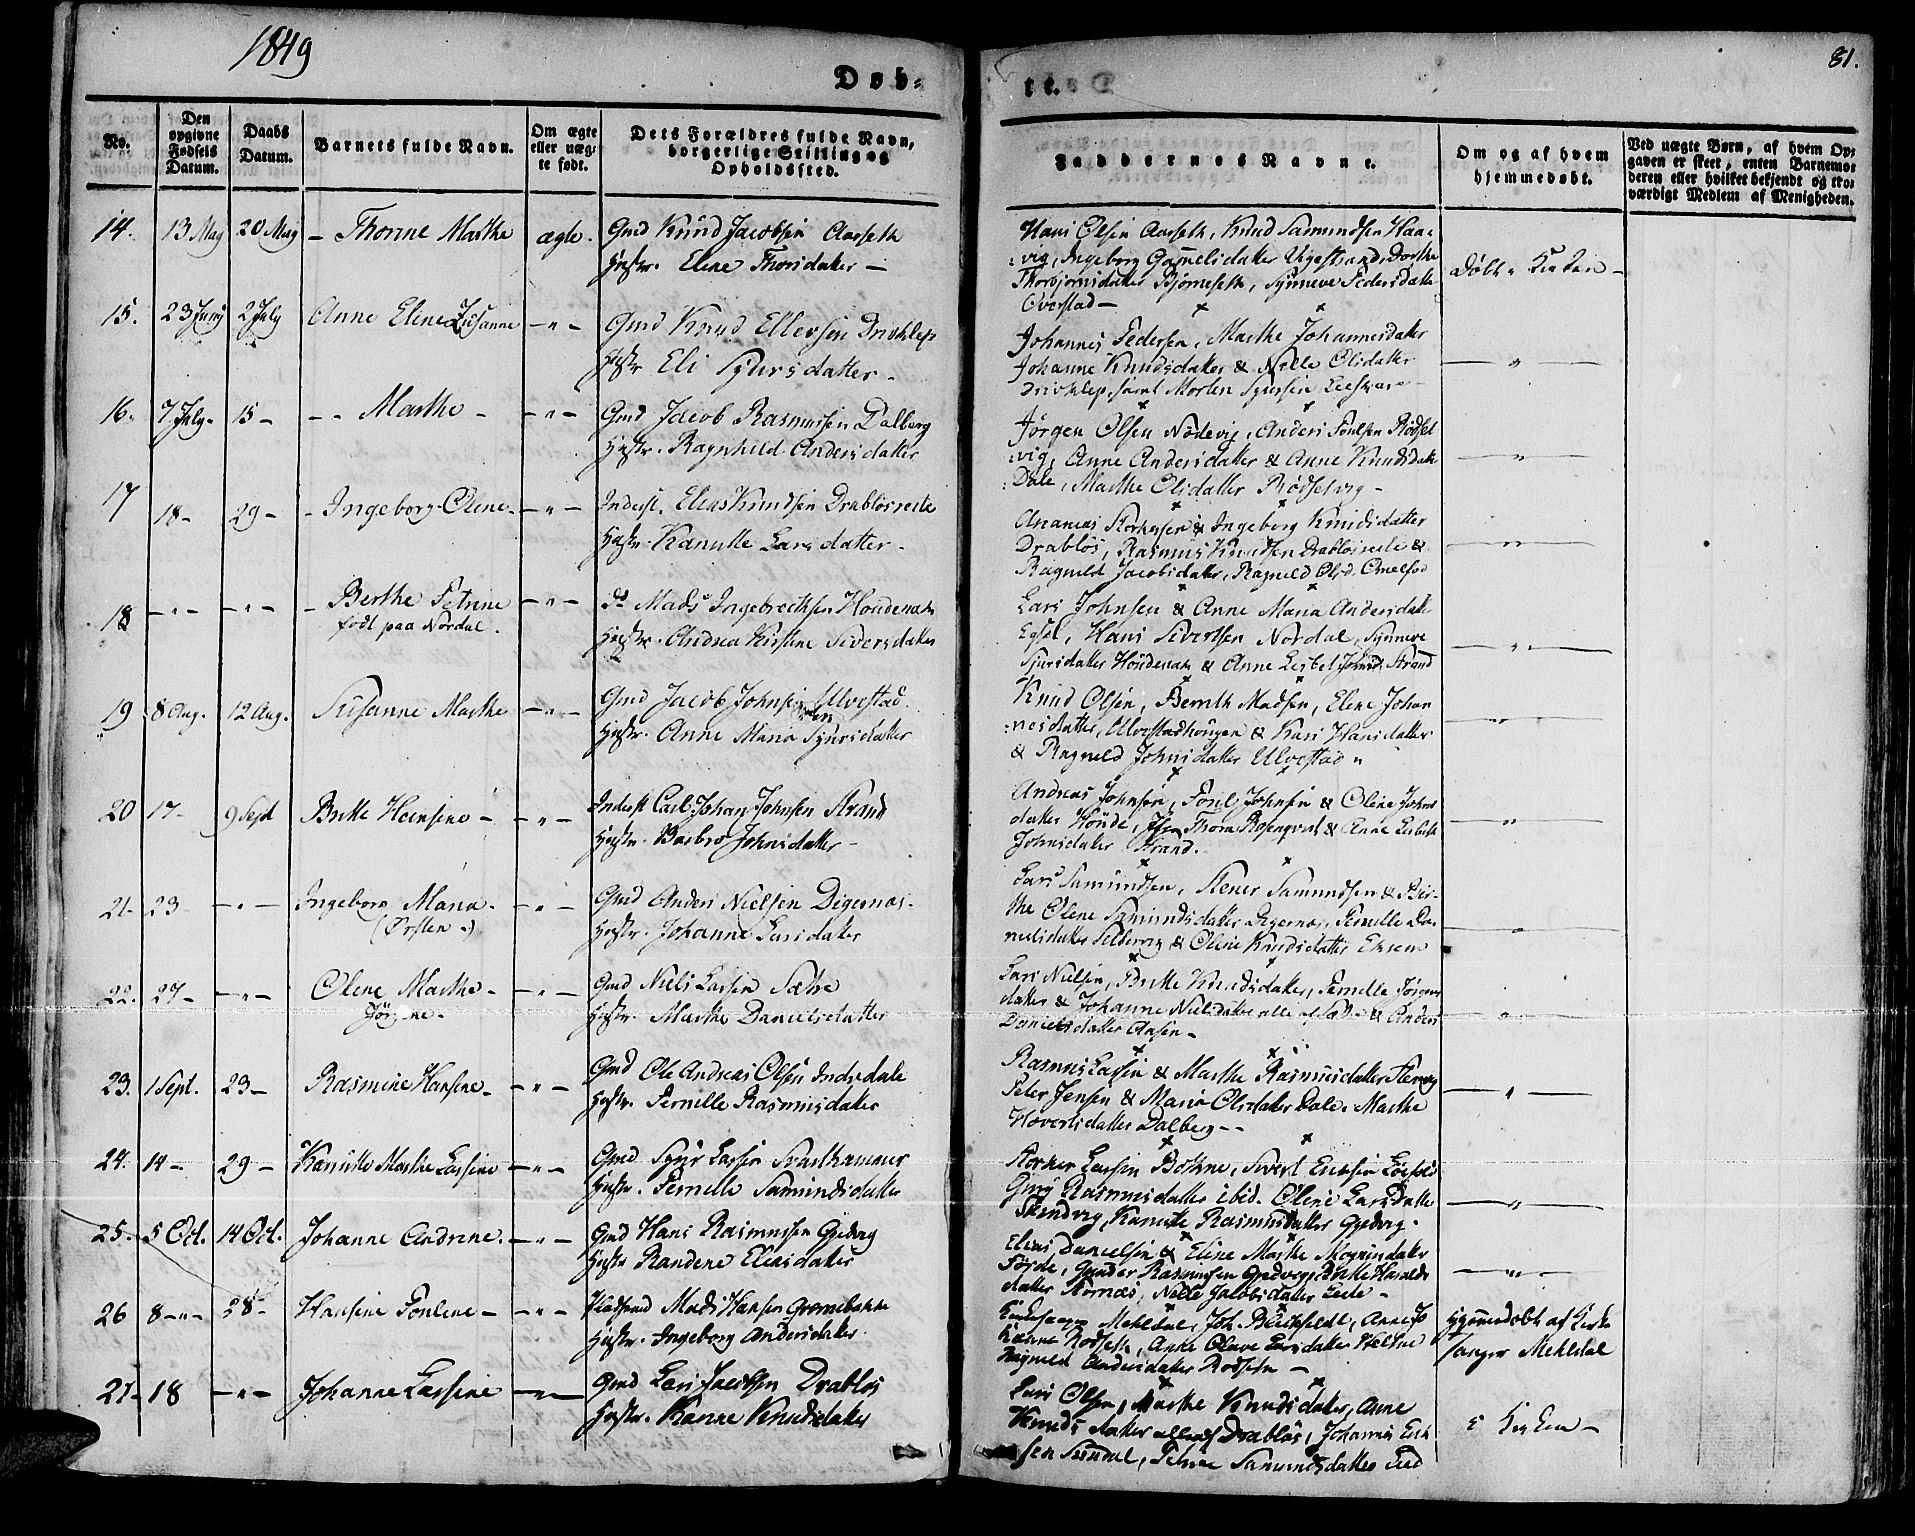 1849
Døb-
te.
81.
No.
Den opgivne Fødsels Datum.
Daabs Datum.
Barnets fulde Navn.
Om ægte eller uægte født.
Dets Forældres fulde Navn, borgerlige Stilling og Opholdsted.
Faddernes Navne.
Om og af hvem hjemmedøbt.
Ved uægte Børn, af hvem Opgaven er skeet, enten Barnemoderen eller hvilket bekjendt og troværdigt Medlem af Menigheden.
14. 13 May 20 May - Thorine Marthe ægte. Gmd Knud Jacobsen Aarseth
Hustr. Eline Thorsdatter -
Hans Olsen Aarseth, Knud Samundsen Haa-
vig, Ingeborg Gamelsdatter Vigestrand, Dorthe
Thorbjørnsdatter Bjørneseth, Synneve Pedersdatter
Overstad -
Døbt i Kirken -
15. 23 Juny 2 July Anne Eline Susanne -"- Gmd Knud Ellevsen Driveklep
Hustr Eli Syversdatter -
Johannes Pedersen, Marthe Johannesdatter
Johanne Knudsdatter & Nille Olsdatter
Driveklep, samt Morten
-"-
16. 7 July - 15 - -- Marthe - -"- Gmd Jacob Rasmusen Dalberg
Hustr. Ragnhild Andersdatter
Jørgen Olsen Nødevig, Anders Poulsen Rødset-
vig, Anne Andersdatter & Anne Knudsdatter
Dale, Marthe Olsdatter Rødsetvig -
-"-
17 18 - 29 - - Ingeborg Oline - -"- Inderst. Elias Knudsen Drabløsreite
Hustr. Kanutte Larsdatter -
Ananias & Ingeborg Knudsdatter
Drabløs, Rasmus Knudsen Drabløsreite &
Ragnild Jacobsdatter, Ragnild Olsd.
-"-
18 -"- -"- - Berthe Petrine -"- Do Mads Ingebrethsen Houdenak
født paa Nordal.
Hustr. Andrea Kirstine Siversdatter
Lars Johnsen & Anne Maria Andersdatter
Egset, Hans Sivertsen Nordal, Synneve
Sjursdatter Houdenak & Anne Lisbet Johnsd. Strand
-"-
19 8 Aug. 12 Aug. Susanne Marthe -"- Gmd Jacob Johnsen Ulvestad
Hustr. Anne Maria Sjursdatter
Knud Olsen, Bernth Madsen, Eline Johan-
nesdatter, Ulvestadhougen & Kari Hansdatter
& Ragnild Johnsdatter Ulvestad "
-"-
20 17 - 9 Sept Britte Hansine - -"- Inderst Carl Johan Johnsen Strand
Hustr. Barbro Johnsdatter -
Andreas Johnsen, Poul Johnsen & Oline Johns
datter Houde, Thora Rosenqvist & Anne Lisbeth
Johnsdatter Strand.
-"-
21. 23 -"- Ingeborg Maria - -"- Gmd Anders Nielsen Digernæs.
(Ørsten -)
Hustr. Johanne Larsdatter
Lars Samundsen, Stener Samundsen & Ber-
the Oline Samundsdatter Digernæs, Pernille Da-
nielsdatter & Oline Knudsdatter
-"-
22. 27 - -"- Oline Marthe - -"- Gmd Niels Larsen Sætre
Jørgine -
Hustr. Marthe Danielsdatter
Lars Nielsen, Britte Knudsdatter, Pernille Jørgens
datter & Johanne Nielsdatter alle af Sætre & Anders
Danielsdatter Aasen -
-"-
23. 1 Sept. 23 - Rasmine Hansine - -"- Gmd Ole Andreas Olsen Indredale
Hustr. Pernille Rasmusdatter
Rasmus Larsen & Marthe Rasmusdatter
Peter Jensen & Maria Olsdatter Dale, Marthe
Hovertsdatter Dalberg - -
-"-
24. 14 - 29 - Kanutte Marthe Lassine -"- Gmd Sjur Lassen Svarthammer
Hustr. Pernille Samundsdatter
Lassen Sivert Ericksen
Rasmusdatter ibid. Oline Larsdatter
Kanutte Rasmusdatter Gjedvig -
-"-
25. 5 Oct. 14 Oct. Johanne Andrine. -"- Gmd Hans Rasmussen Gjedvig
Hustr Randine Eliasdatter
Elias Danielsen & Eline Marthe Mogensdatter
Førde, Rasmusen Gjedvig, Britte Haralds
datter Nille Jacobsdatter
-"-
26 8 -"- 28 - Hansine Pouline - -"- Pladsmd Mads Hansen Grønnebakke
Hustr. Ingeborg Andersdatter
Kirkesanger Mehldal, Joh.
Rødseth, Anne Olave Larsdatter
Ragnild Andersdatter Rødseth -
Hjemmedøbt af Kirke
sanger Mehldal
27 - 18 -"- Johanne Lassine -"- Gmd Lars Jacobsen Drabløs
Hustr. Hanne Knudsdatter
Lars Olsen, Marthe Knudsdatter, Anne
Knudsdatter alle af Drabløs, Johannes Erik
sen Sundal, Samundsdatter
i Kirken -